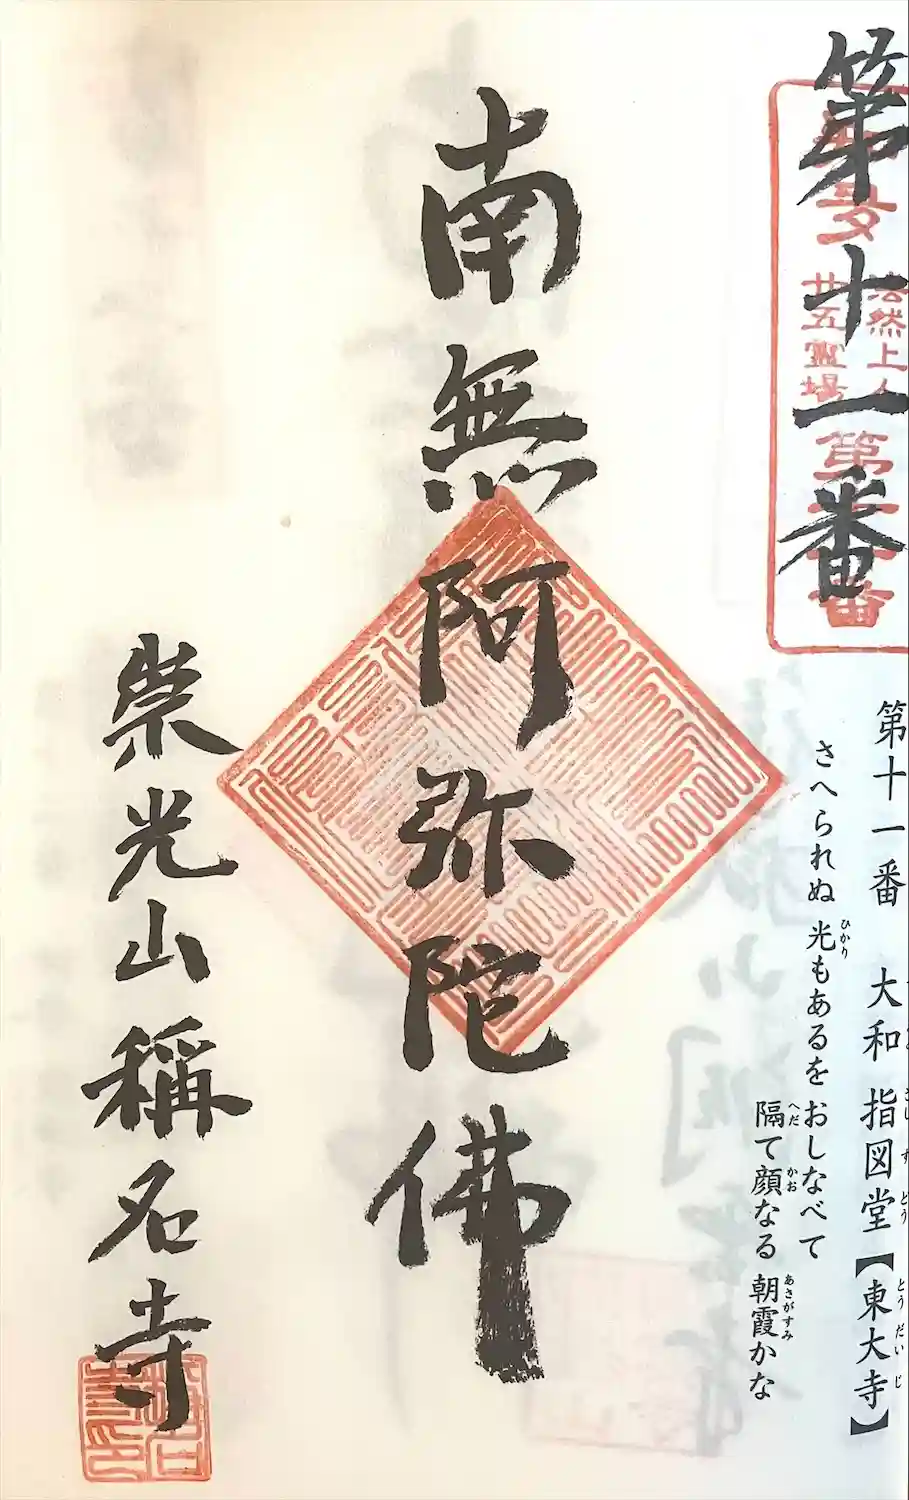 第十一番
法然上人
廿五霊場
第十一番
第十一番 大和 指図堂【東大寺】
さへられぬ 光もあるを おしなべて
隔て顔なる 朝霞かな
南無阿弥陀佛
崇光山稱名寺